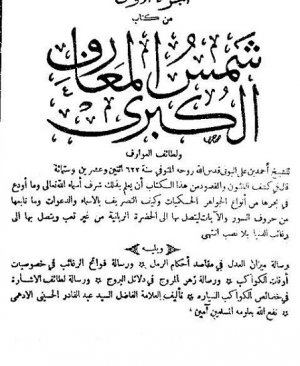 الجزء الأول
من كتاب
شمس المعارف
الكبرى
ولطائف العوارف
للشيخ أحمد بن علي البوني قدس الله روحه المتوفى سنة ٦٢٢ اثنين وعشرين وستمائة
قال في كشف الظنون والمقصود من هذا الكتاب أن يعلم بذلك شرف أسماء الله تعالى وما أودع
في بحرها من أنواع الجواهر الحكميات وكيف التصرف بالأسماء والدعوات وما تابعها
من حروف السور والآيات ليتصل بها الى الحضرة الربانية من غير تعب ويتصل بها الى
رغائب الدنيا بلا نصب انتهى
ويليه
رسالة ميزان العدل في مقاصد أحكام الرمل ورسالة فواتح الرغائب في خصوصيات
أوقات الكواكب ورسالة زهر المروج في دلائل البروج ورسالة لطائف الاشارة
في خصائص الكواكب السيارة تأليف العلامة الفاضل السيد عبد القادر الحسيني الادهمي
نفع الله بعلومه المسلمين آمين